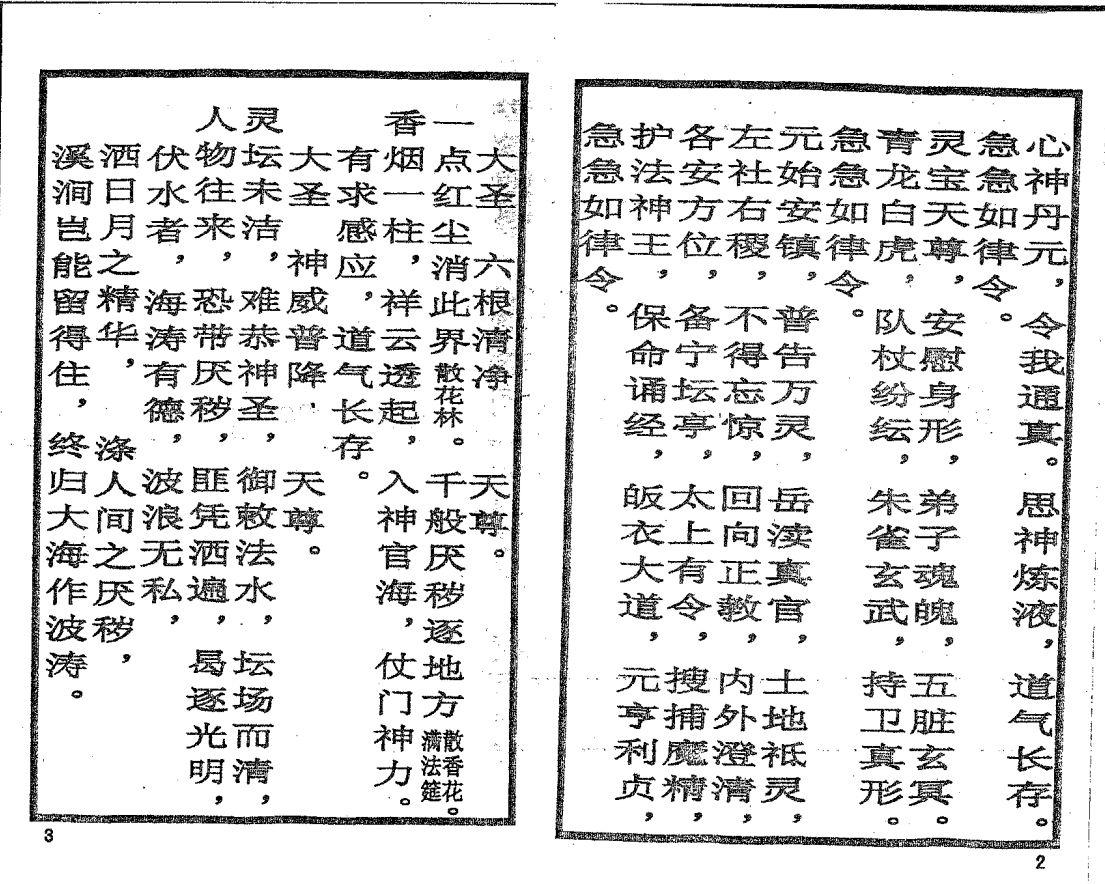 心神丹元，令我通真。思神炼液，道气长存。
急急如律令。
灵宝天尊，安慰身形，弟子魂魄，五脏玄冥。
青龙白虎，队杖纷纭，朱雀玄武，持卫真形。
急急如律令。
元始安镇，普告万灵，岳渎真官，土地祗灵，
左社右稷，不得忘惊，回向正教，内外澄清，
各安方位，备宁坛亭，太上有令，搜捕魔精，
护法神王，保命诵经，皈衣大道，元亨利贞，
急急如律令。
2
大圣 六根清净 天尊。
一点红尘消此界散花林。千般厌秽逐地方散香花满法筵。
香烟一柱，祥云透起，入神官海，仗门神力。
有求感应，道气长存。
大圣 神威普降， 天尊。
灵坛未洁，难恭神圣，御敕法水，坛场而清，
人物往来，恐带厌秽，匪凭洒遍，曷逐光明，
伏水者，海涛有德，波浪无私，
洒日月之精华，涤人间之厌秽，
溪涧岂能留得住，终归大海作波涛。
3